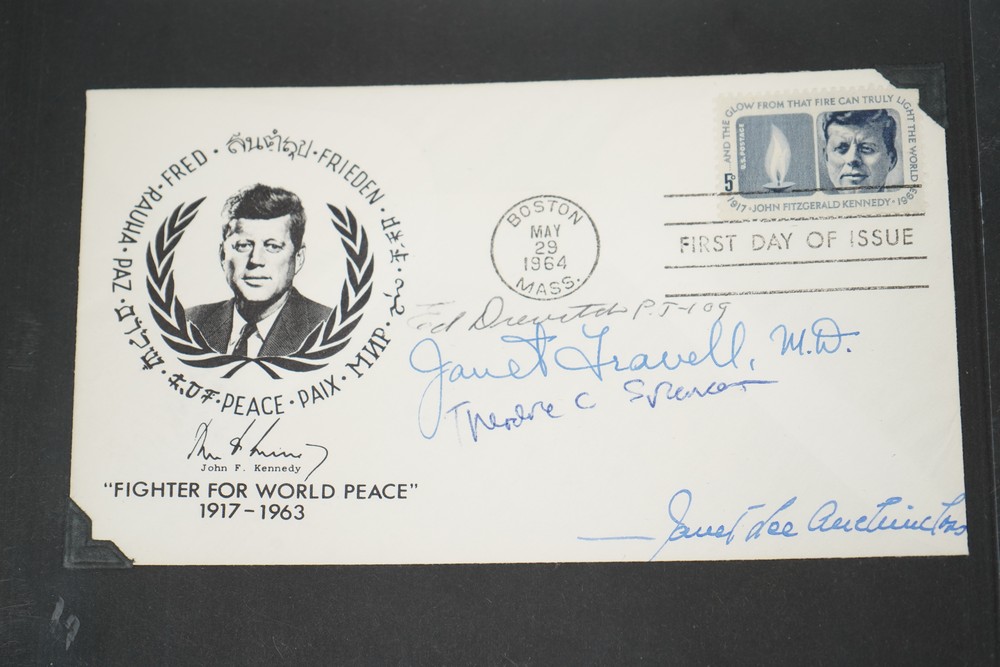 PEACE · PAIX · МИР · FRIEDEN · สันติสุข · FRED · RAUHA · PAZ
John F. Kennedy
"FIGHTER FOR WORLD PEACE"
1917-1963
BOSTON
MAY
29
1964
MASS.
AND THE GLOW FROM THAT FIRE CAN TRULY LIGHT THE WORLD
U.S. POSTAGE
5¢
1917 · JOHN FITZGERALD KENNEDY · 1963
FIRST DAY OF ISSUE
P.T-109
Janet Travell, M.D.
Theodore C
Janet Lee Auchincloss